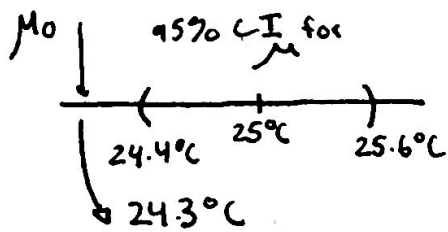 μ₀
95% CI for
μ
24.4°C
25°C
25.6°C
24.3°C